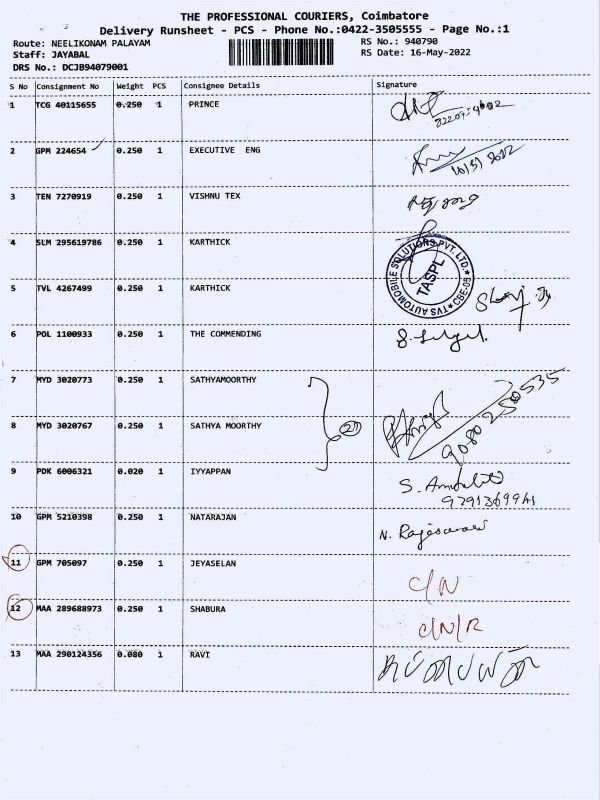 THE PROFESSIONAL COURIERS, Coimbatore
Delivery Runsheet - PCS - Phone No.:0422-3505555 - Page No.:1
Route: NEELIKONAM PALAYAM
Staff: JAYABAL
DRS No.: DCJB94079001
RS No.: 940790
RS Date: 16-May-2022
S No Consignment No Weight PCS Consignee Details Signature
1 TCG 40115655 0.250 1 PRINCE
2 GPM 224654 0.250 1 EXECUTIVE ENG
3 TEN 7270919 0.250 1 VISHNU TEX
4 SLM 295619786 0.250 1 KARTHICK
TVS AUTOMOBILE SOLUTIONS PVT. LTD. CBE-05
TASPL
5 TVL 4267499 0.250 1 KARTHICK
6 POL 1100933 0.250 1 THE COMMENDING
7 MYD 3020773 0.250 1 SATHYAMOORTHY
8 MYD 3020767 0.250 1 SATHYA MOORTHY
9080250535
9 PDK 6006321 0.020 1 IYYAPPAN
10 GPM 5210398 0.250 1 NATARAJAN N. Rajeswari
11 GPM 705097 0.250 1 JEYASELAN C/N
12 MAA 289688973 0.250 1 SHABURA C/N/R
13 MAA 290124356 0.080 1 RAVI